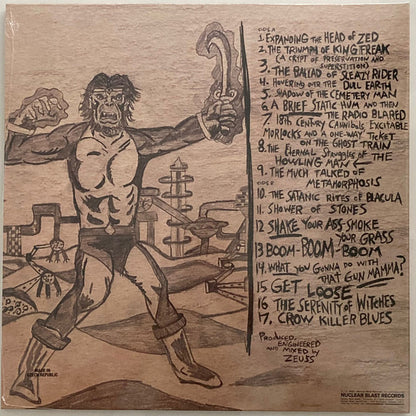 SIDE A
1. EXPANDING THE HEAD OF ZED
2. THE TRIUMPH OF KING FREAK
(A CRYPT OF PRESERVATION AND
SUPERSTITION)
3. THE BALLAD OF SLEAZY RIDER
4. HOVERING OVER THE DULL EARTH
5. SHADOW OF THE CEMETERY MAN
6. A BRIEF STATIC HUM AND THEN
THE RADIO BLARED
7. 18th CENTURY CANNIBALS, EXCITABLE
MORLOCKS AND A ONE-WAY TICKET
ON THE GHOST TRAIN
8. THE ETERNAL STRUGGLES OF THE
HOWLING MAN
9. THE MUCH TALKED OF
METAMORPHOSIS
SIDE B
10. THE SATANIC RITES OF BLACULA
11. SHOWER OF STONES
12 SHAKE YOUR ASS-SMOKE
YOUR GRASS
13 BOOM-BOOM-BOOM
14. WHAT YOU GONNA DO WITH
THAT GUN MAMMA?
15 GET LOOSE
16 THE SERENITY OF WITCHES
17. CROW KILLER BLUES
PRODUCED
ENGINEERED
AND MIXED BY
ZEUSS
MADE IN
CZECH REPUBLIC
NUCLEAR BLAST RECORDS